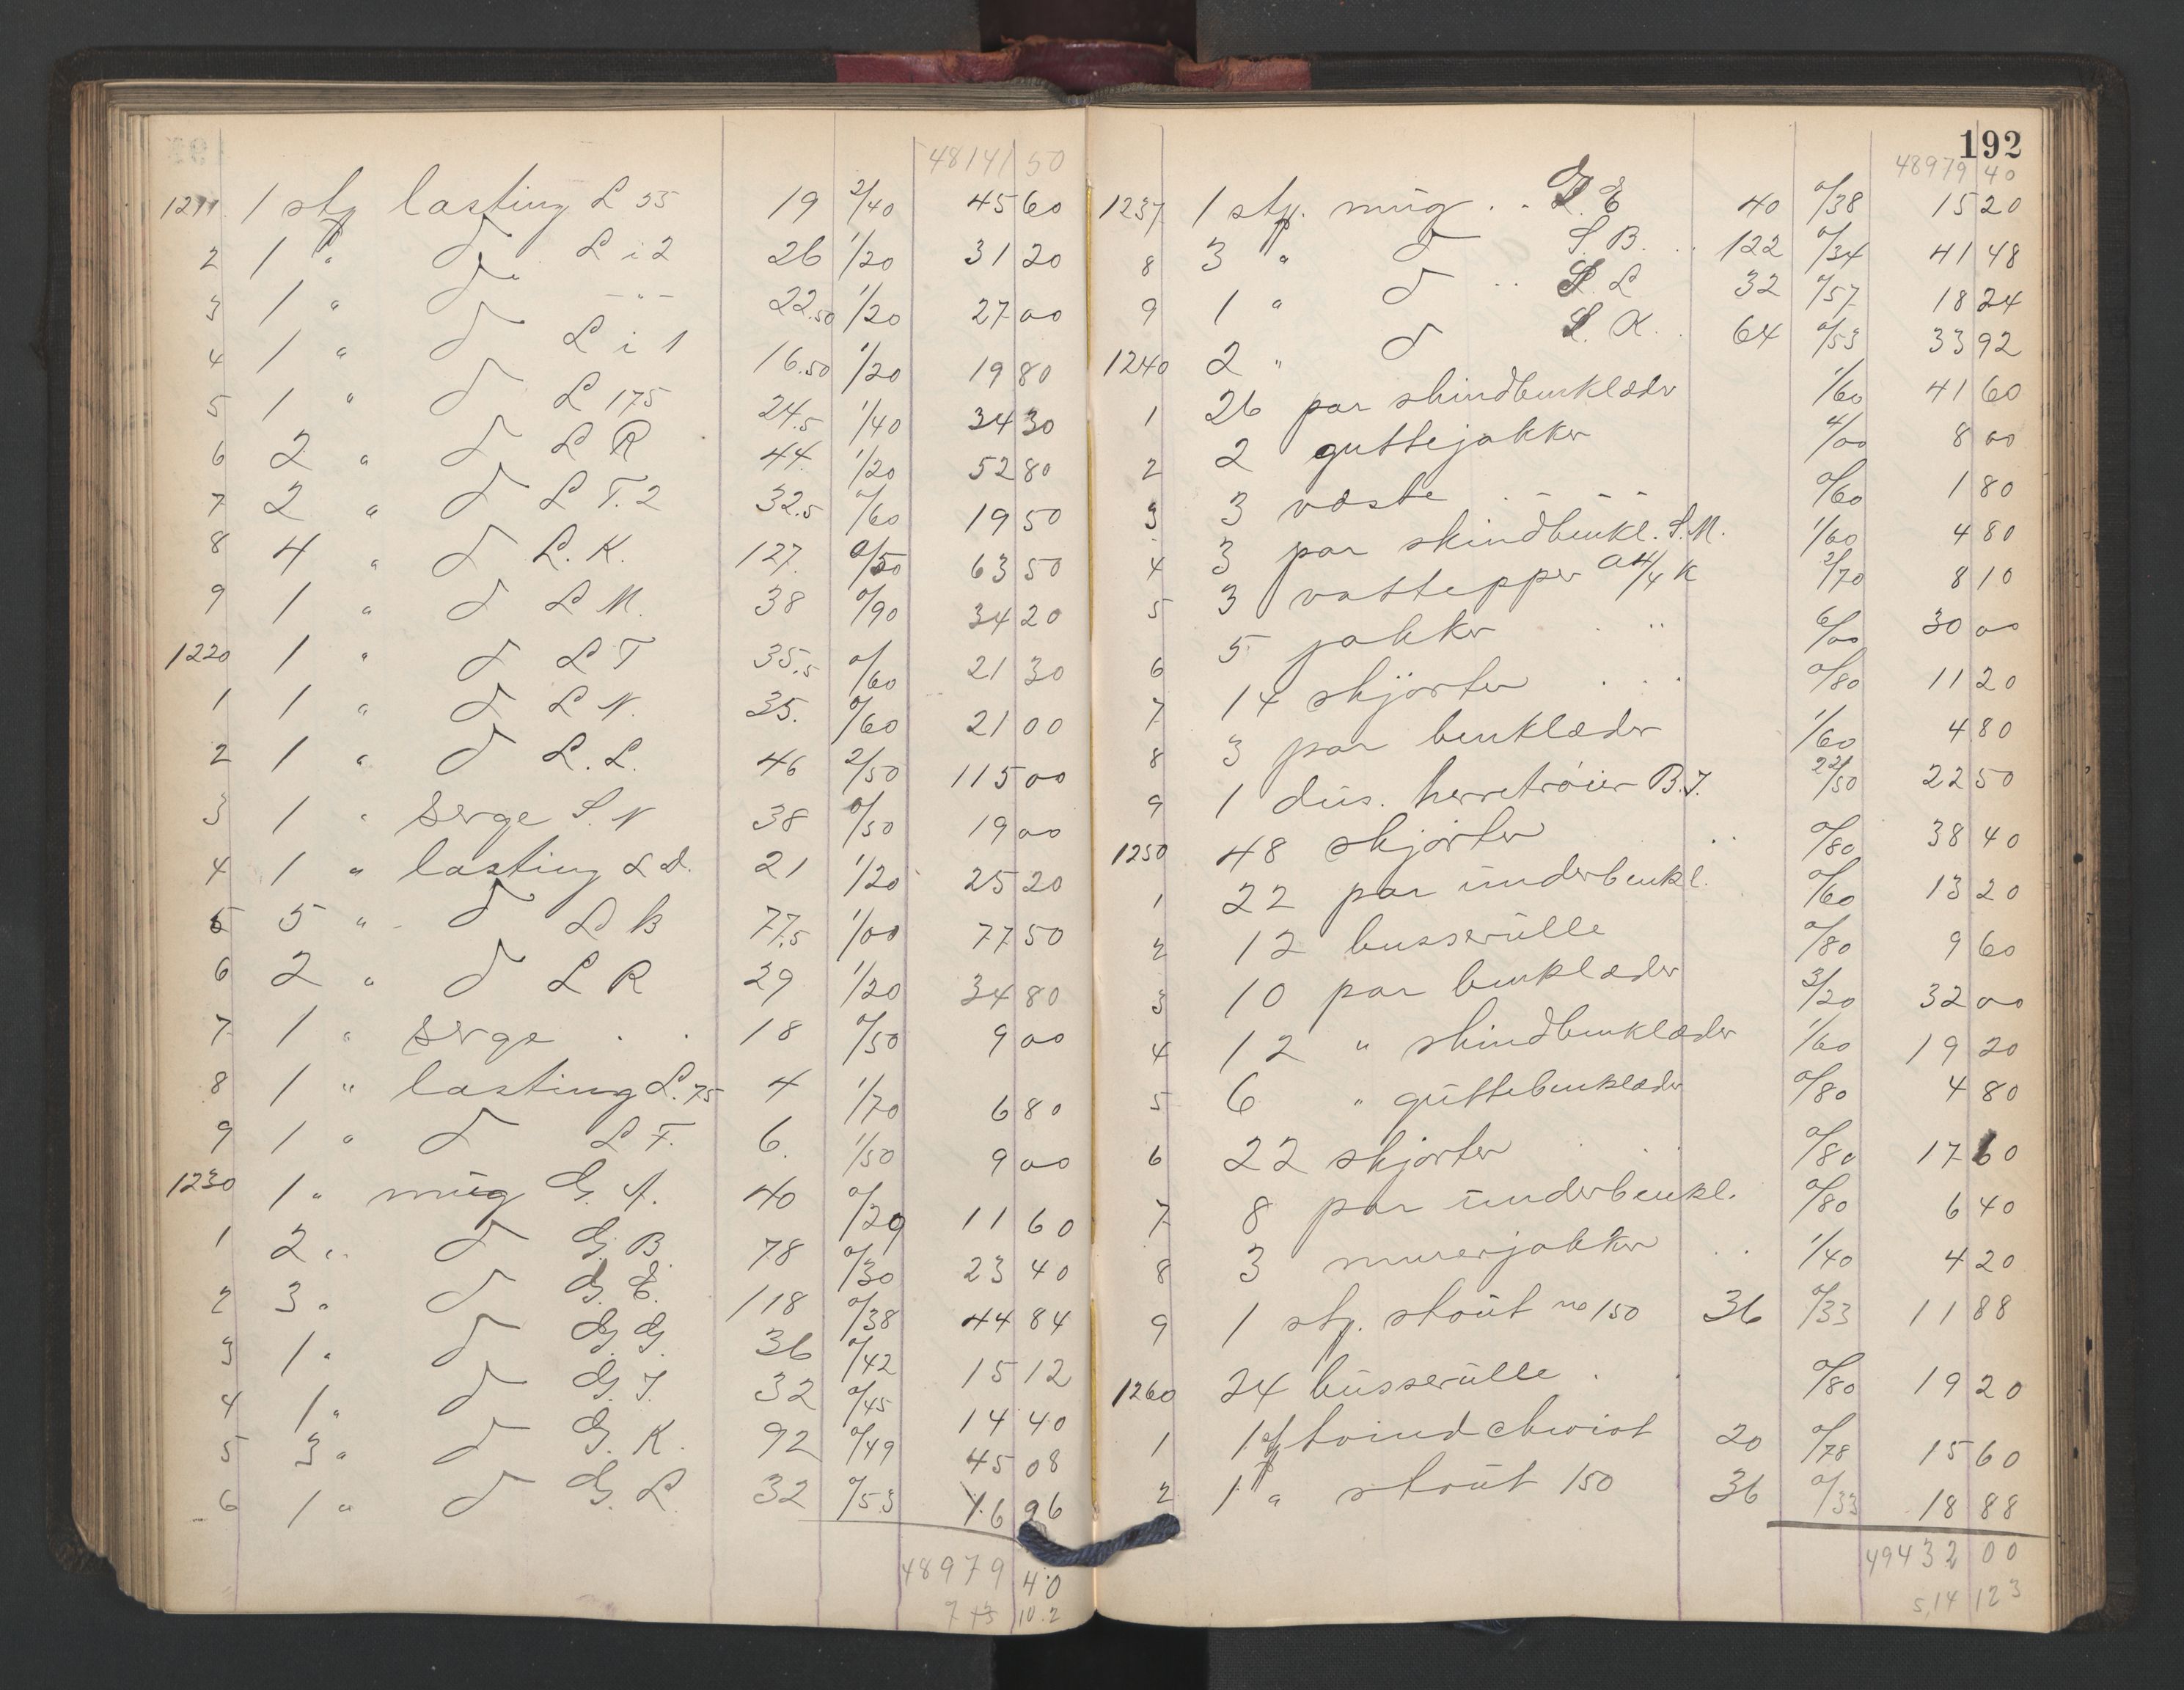 48141 50
1211 1 stf lasting L 55 19 2/40 45 60
2 1 " d L i 2 26 1/20 31 20
3 1 " d - " - 22.50 1/20 27 00
4 1 " d L i 1 16.50 1/20 19 80
5 1 " d L 175 24.5 1/40 34 30
6 2 " d L R 44 1/20 52 80
7 2 " d L T. 2 32.5 0/60 19 50
8 4 " d L. K. 127. 0/50 63 50
9 1 " d L M. 38 0/90 34 20
1220 1 " d L T 35.5 0/60 21 30
1 1 " d L N. 35. 0/60 21 00
2 1 " d L. L. 46 2/50 115 00
3 1 " serge S. N 38 0/50 19 00
4 1 " lasting L d. 21 1/20 25 20
5 5 " d L B 77,5 1/00 77 50
6 2 " d L R 29 1/20 34 80
7 1 " serge . . 18 0/50 9 00
8 1 " lasting L. 75 4 1/70 6 80
9 1 " d L F. 6. 1/50 9 00
1230 1 " müg G. A. 40 0/29 11 60
1 2 " d G. B 78 0/30 23 40
2 3 " d G. E. 118 0/38 44 84
3 1 " d G. G. 36 0/42 15 12
4 1 " d G. I. 32 0/45 14 40
5 3 " d G. K. 92 0/49 45 08
6 1 " d G. L. 32 0/53 16 96
48979 40
192
48979 40
1237 1 stf. müg . . E 40 0/38 15 20
8 3 " d S. B. . 122 0/34 41 48
9 1 " d . . S. L 32 0/57 18 24
1240 2 " d S. K. 64 0/53 33 92
1 26 par skindbenklæder 1/60 41 60
2 2 guttejakker 4/00 8 00
3 3 væste . - - - 0/60 1 80
4 3 par skindbenkl. S. M. 1/60 4 80
5 3 vattepper a 4/4 K 2/70 8 10
6 5 jakker . " 6/00 30 00
7 14 skjorter . . . 0/80 11 20
8 3 par benklæder 1/60 4 80
9 1 düs. herretröier B. I. 22/50 22 50
1250 48 skjorter . . 0/80 38 40
1 22 par ünderbenkl. 0/60 13 20
2 12 busserülle 0/80 9 60
3 10 par benklæder 3/20 32 00
4 12 " skindbenklæder 1/60 19 20
5 6 " güttebenklæder 0/80 4 80
6 22 skjorter . . 0/80 17 60
7 8 par ünderbenkl. 0/80 6 40
8 3 murerjakker . . 1/40 4 20
9 1 stf. stoüt no 150 36 0/33 11 88
1260 24 büsserülle . . 0/80 19 20
1 1 stf tvind cheviot 20 0/78 15 60
2 1 " stoüt 150 36 0/33 18 88
49432 00
5,14 12 3